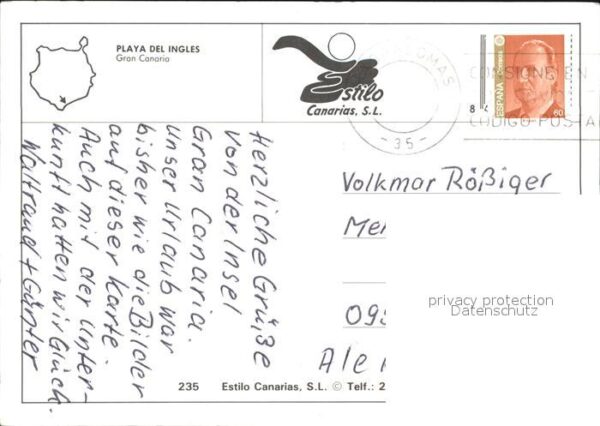 PLAYA DEL INGLES
Gran Canaria
Estilo
Canarias, S.L.
ESPAÑA
CORREOS
60
-35-
CONSIGNE EN
CODIGO POSTA
Herzliche Grüße
von der Insel
Gran Canaria.
Unser Urlaub war
bisher wie die Bilder
auf dieser Karte.
Auch mit der Unter-
kunft hatten wir Glück.
Waltraud + Günter
Volkmar Rößiger
Me
09
Ale
privacy protection
Datenschutz
235 Estilo Canarias, S.L. © Telf.: 2